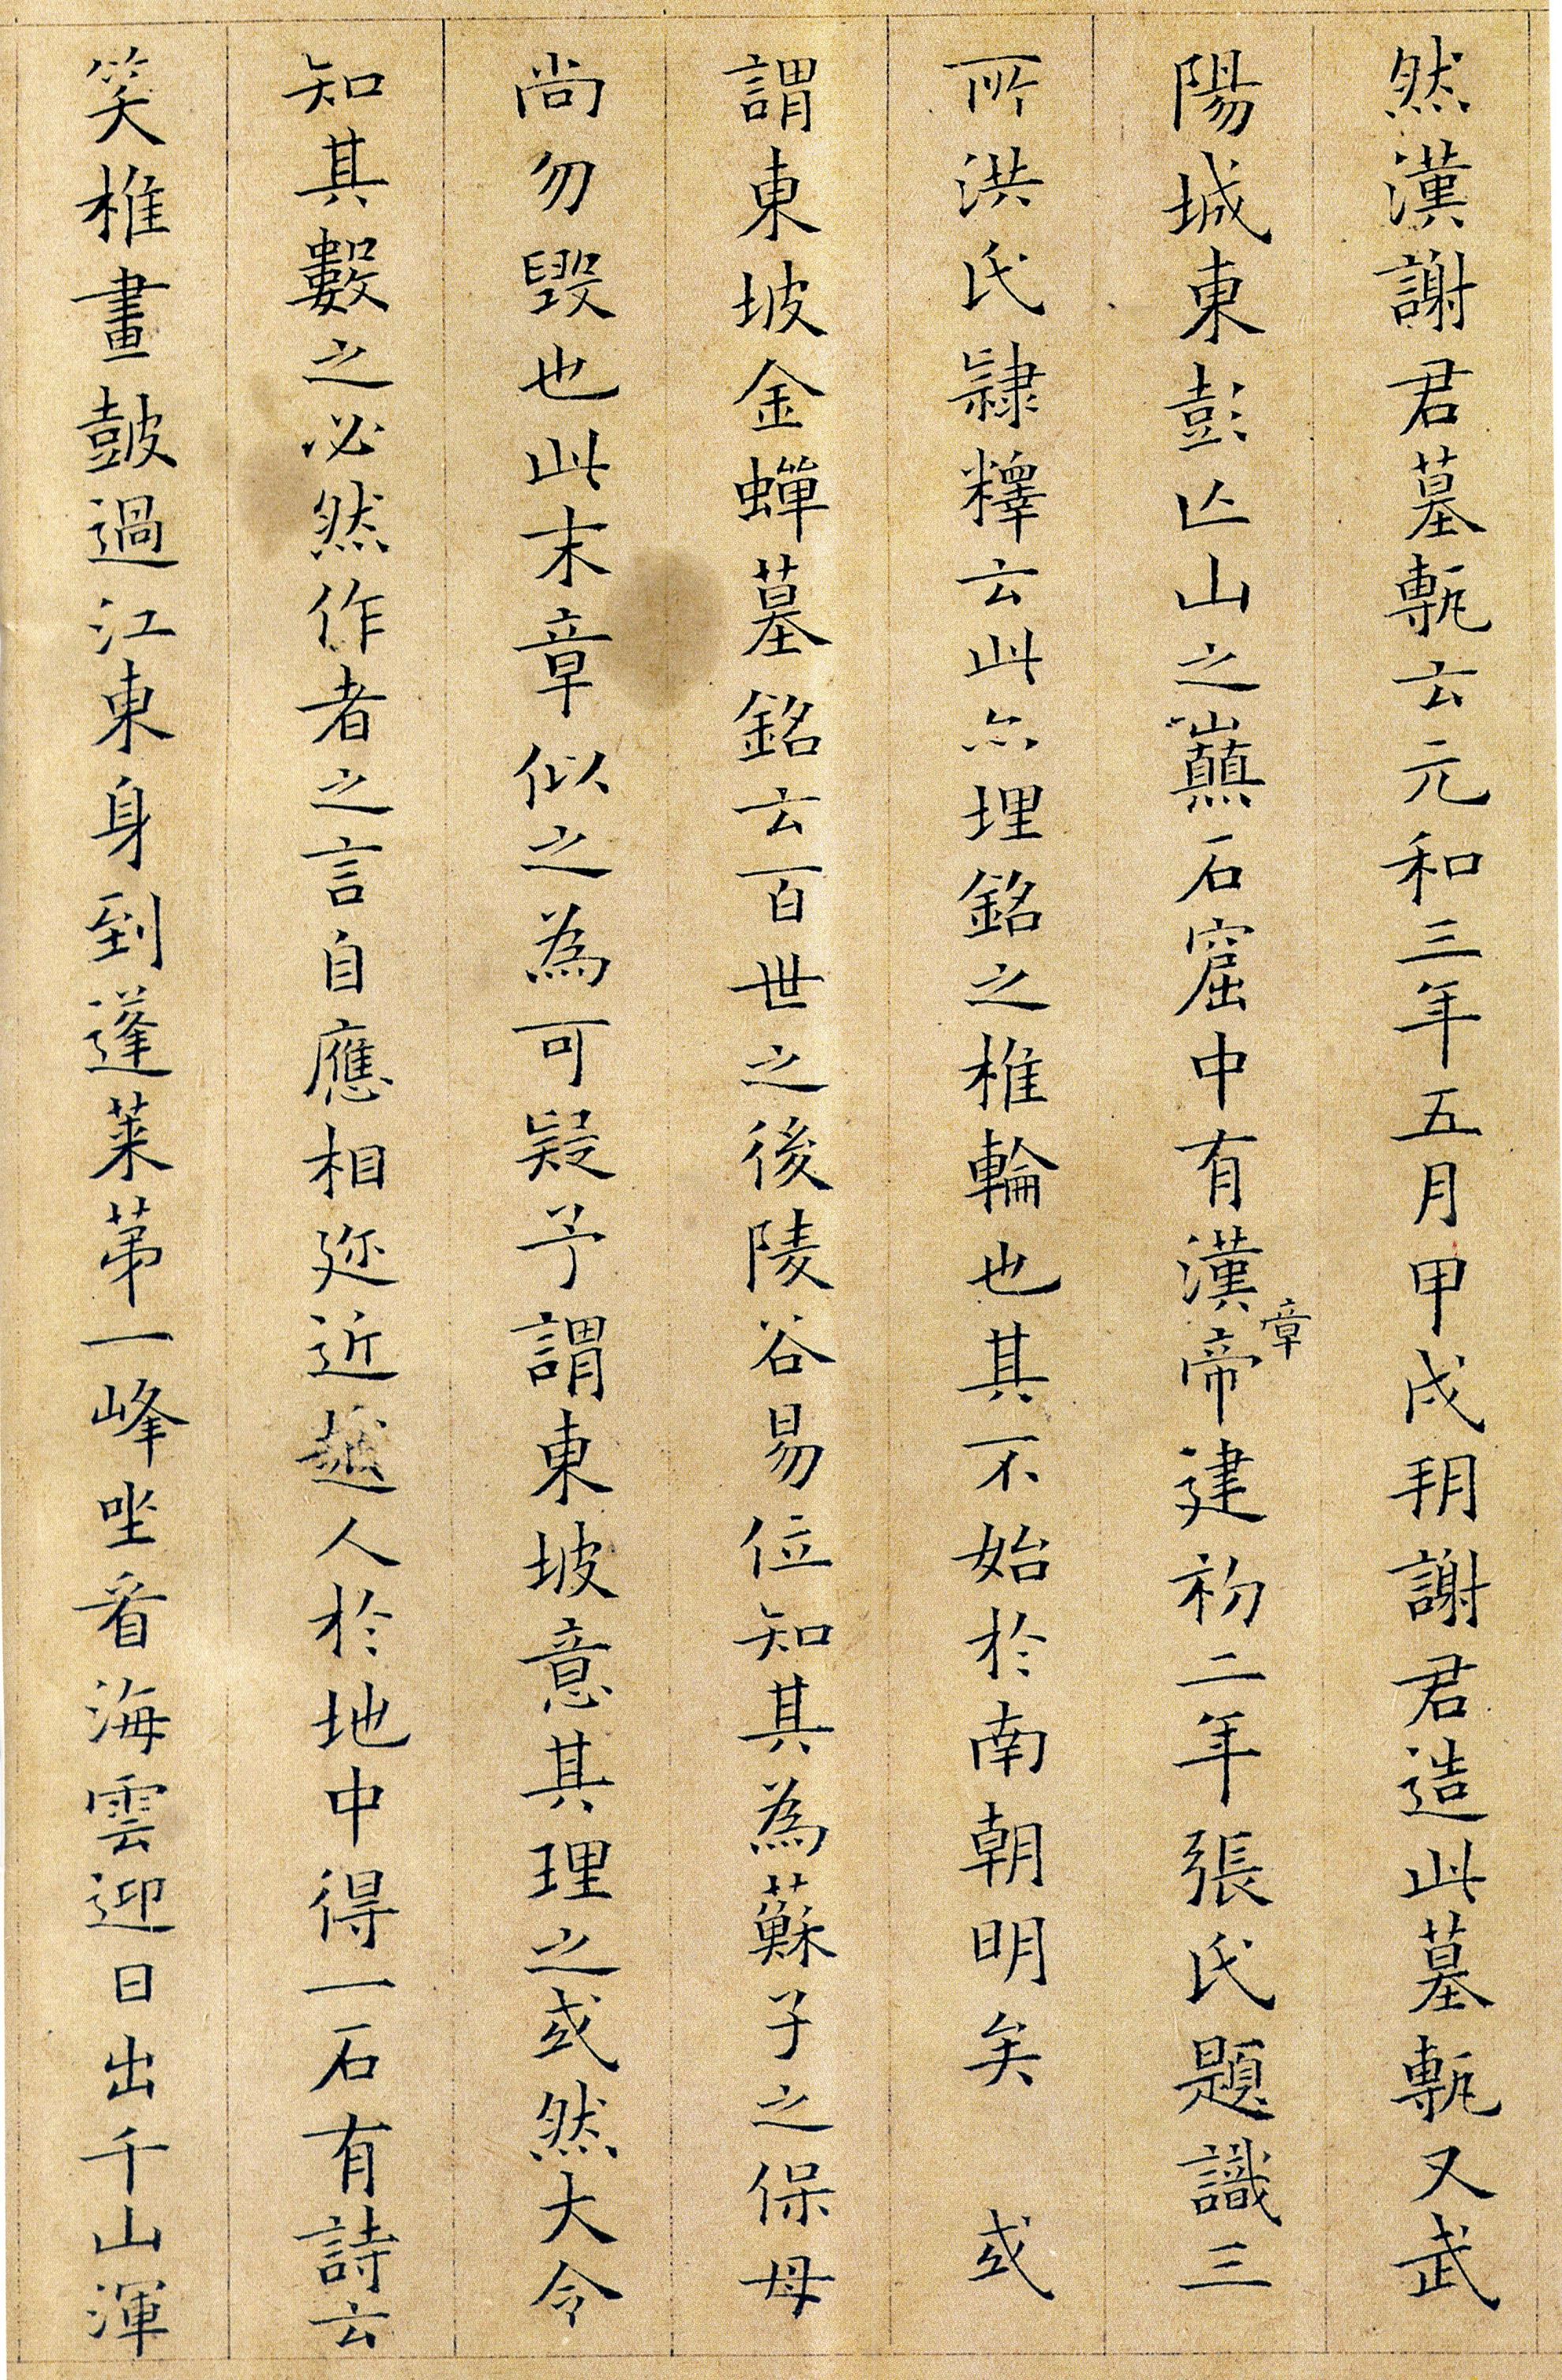 然漢謝君墓甎云元和三年五月甲戌朔謝君造此墓甎又武
陽城東彭亡山之巔石窟中有漢章帝建初二年張氏題識三
所洪氏隸釋云此亦埋銘之椎輪也其不始於南朝明矣　或
謂東坡金蟬墓銘云百世之後陵谷易位知其為蘇子之保母
尚勿毀也此末章似之為可疑予謂東坡意其理之或然大令
知其數之必然作者之言自應相近近越人於地中得一石有詩云
笑椎畫鼓過江東身到蓬萊第一峰坐看海雲迎日出千山渾